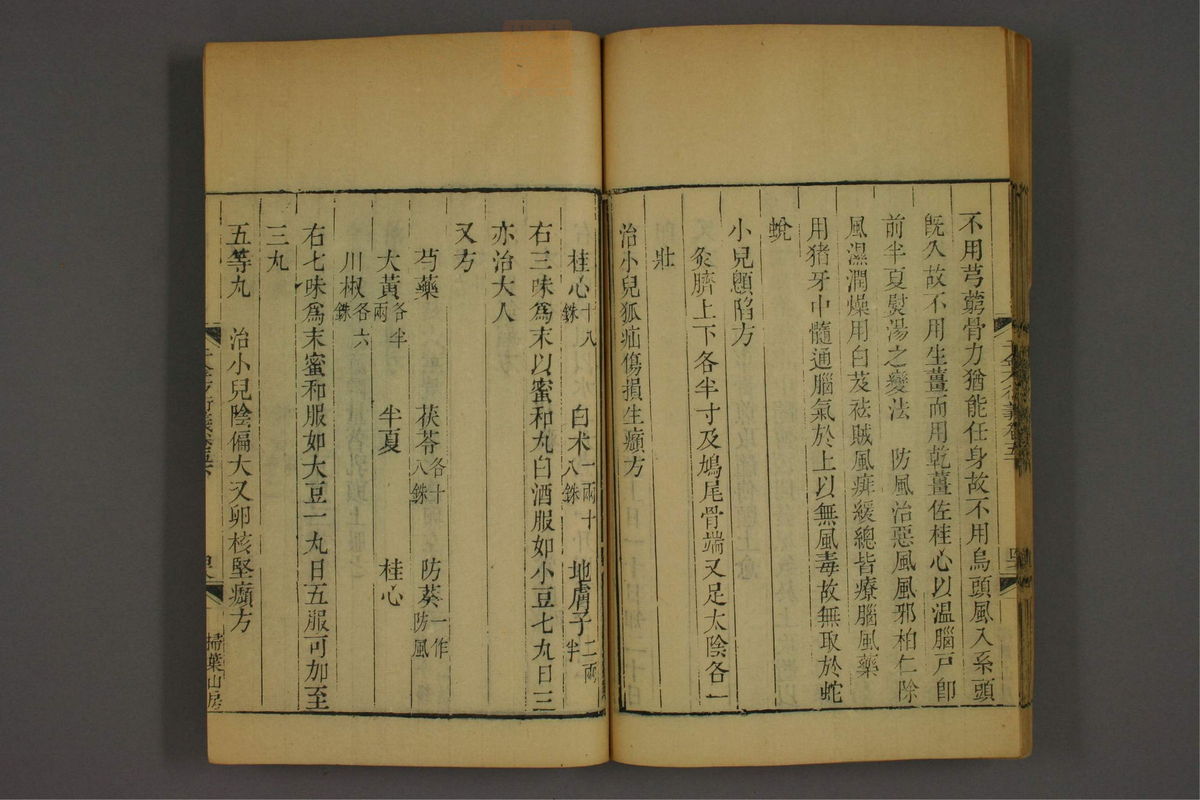 不用芎藭骨力猶能任身故不用烏頭風入系頭
旣久故不用生薑而用乾薑佐桂心以溫腦戸卽
前半夏熨湯之變法　防風治惡風風邪柏仁除
風濕潤燥用白芨祛賊風痱緩總皆療腦風藥
用猪牙中髓通腦氣於上以無風毒故無取於蛇
蛻
小兒顖陷方
灸臍上下各半寸及鳩尾骨端又足太陰各一
壯
治小兒狐疝傷損生㿗方
桂心十八銖　白朮一兩十八銖　地膚子二兩半
右三味爲末以蜜和丸白酒服如小豆七丸日三
亦治大人
又方
芍藥　茯苓各十八銖　防葵一作防風
大黃各半兩　半夏　桂心
川椒各六銖
右七味爲末蜜和服如大豆一丸日五服可加至
三丸
五等丸　治小兒陰偏大又卵核堅㿗方
掃葉山房